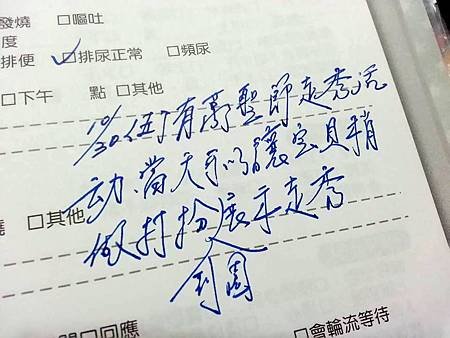 發燒 □嘔吐
度
排便 ☑排尿正常 □頻尿
□下午 點 □其他
10/30 伍有萬聖師走秀活
动,當天可以讓宝貝稍
□其他
做打扮展示走秀
到園
□回應
□會輪流等待